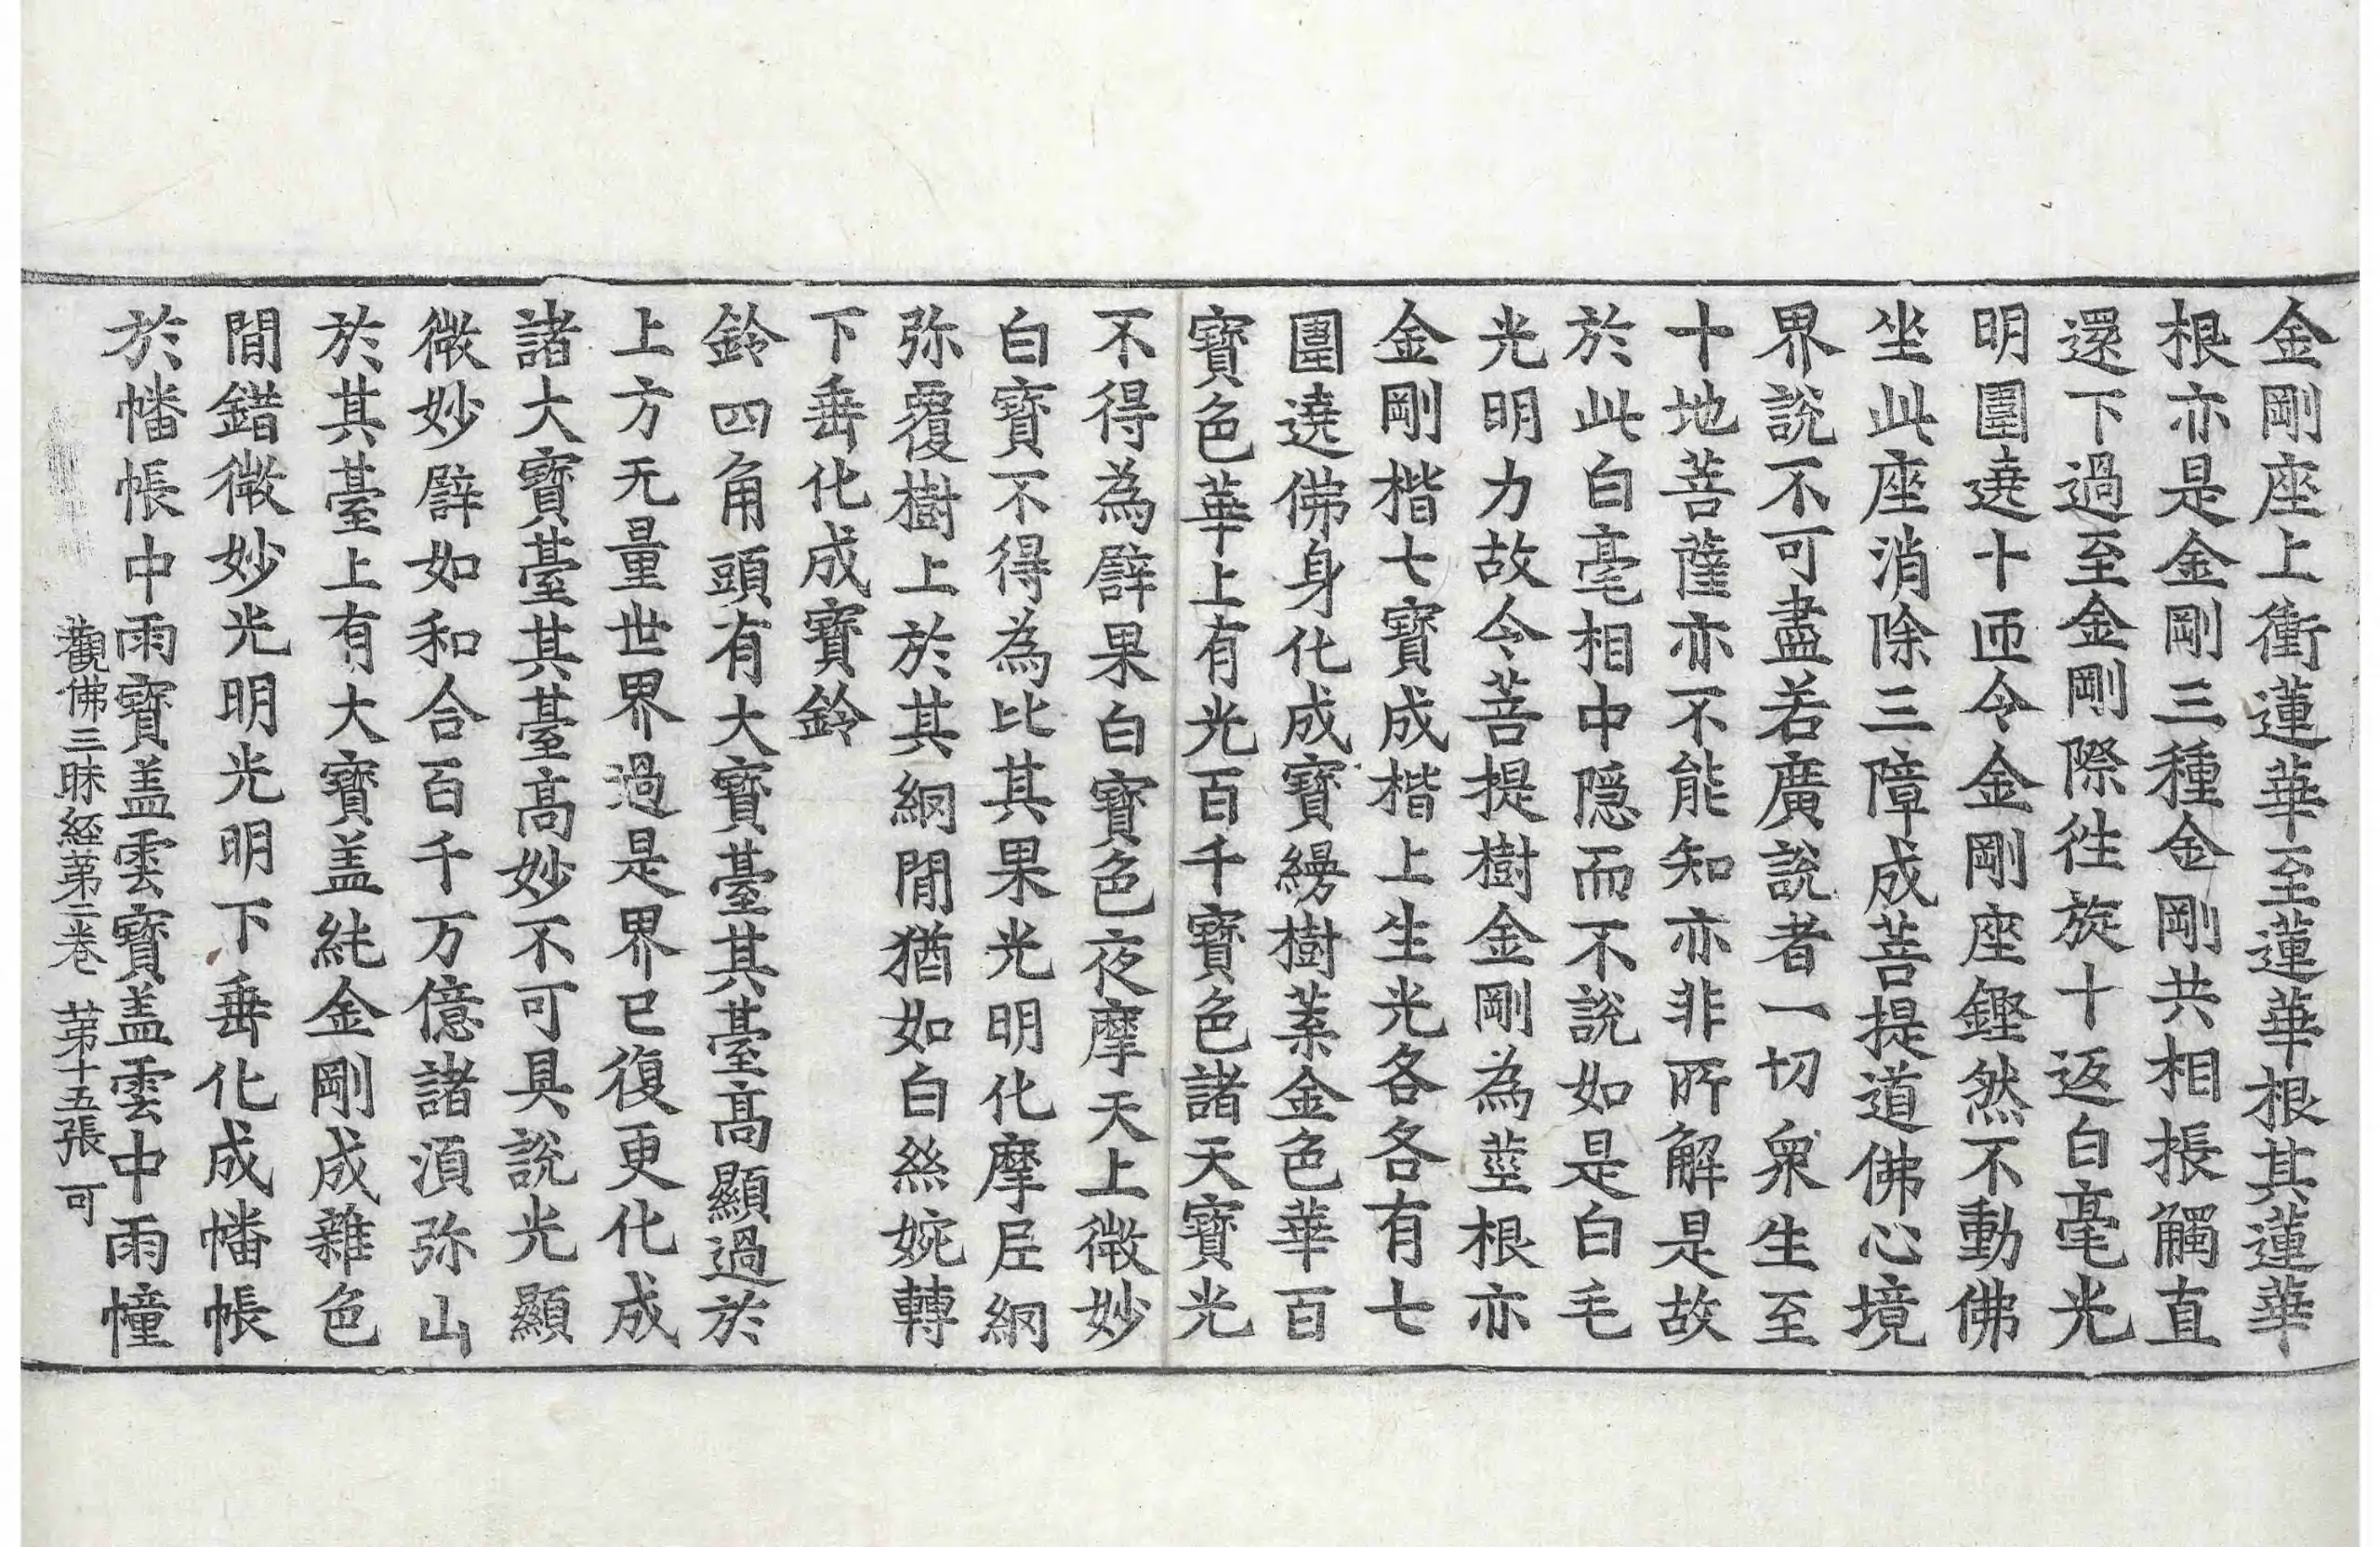 金剛座上衝蓮華至蓮華根其蓮華
根亦是金剛三種金剛共相掁觸直
還下過至金剛際往旋十返白毫光
明圍遶十匝令金剛座鏗然不動佛
坐此座消除三障成菩提道佛心境
界說不可盡若廣說者一切衆生至
十地菩薩亦不能知亦非所解是故
於此白毫相中隱而不說如是白毛
光明力故令菩提樹金剛為莖根亦
金剛楷七寶成楷上生光各各有七
圍遶佛身化成寶縵樹葉金色華百
寶色華上有光百千寶色諸天寶光
不得為譬果白寶色夜摩天上微妙
白寶不得為比其果光明化摩尼網
弥覆樹上於其網間猶如白絲婉轉
下垂化成寶鈴
鈴四角頭有大寶臺其臺高顯過於
上方无量世界過是界已復更化成
諸大寶臺其臺高妙不可具說光顯
微妙譬如和合百千万億諸湏弥山
於其臺上有大寶盖純金剛成雜色
間錯微妙光明光明下垂化成幡帳
於幡帳中雨寶盖雲寶盖雲中雨幢
觀佛三昧經苐二卷 苐十五張 可